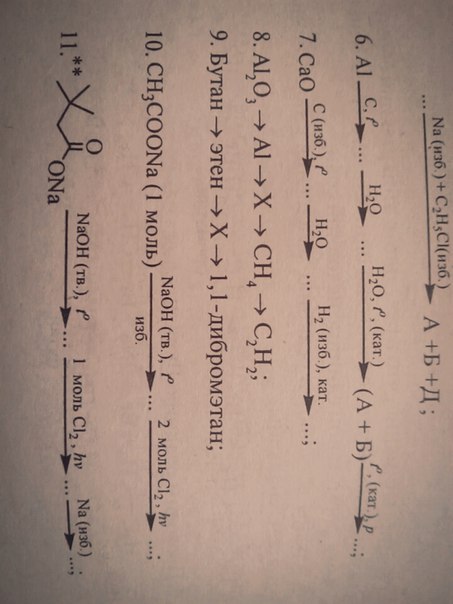 ... Na (изб.) + C₂H₅Cl(изб.) → А + Б + Д ;
6. Al C, t° → ... H₂O → ... H₂O, t°, (кат.) → (А + Б) t°, (кат.), p → ...;
7. CaO C (изб.), t° → ... H₂O → ... H₂ (изб.), кат. → ...;
8. Al₂O₃ → Al → X → CH₄ → C₂H₂;
9. Бутан → этен → X → 1,1-дибромэтан;
10. CH₃COONa (1 моль) NaOH (тв.), t° изб. → ... 2 моль Cl₂, hν → ...;
11.** O ONa NaOH (тв.), t° → ... 1 моль Cl₂, hν → ... Na (изб.) → ...;